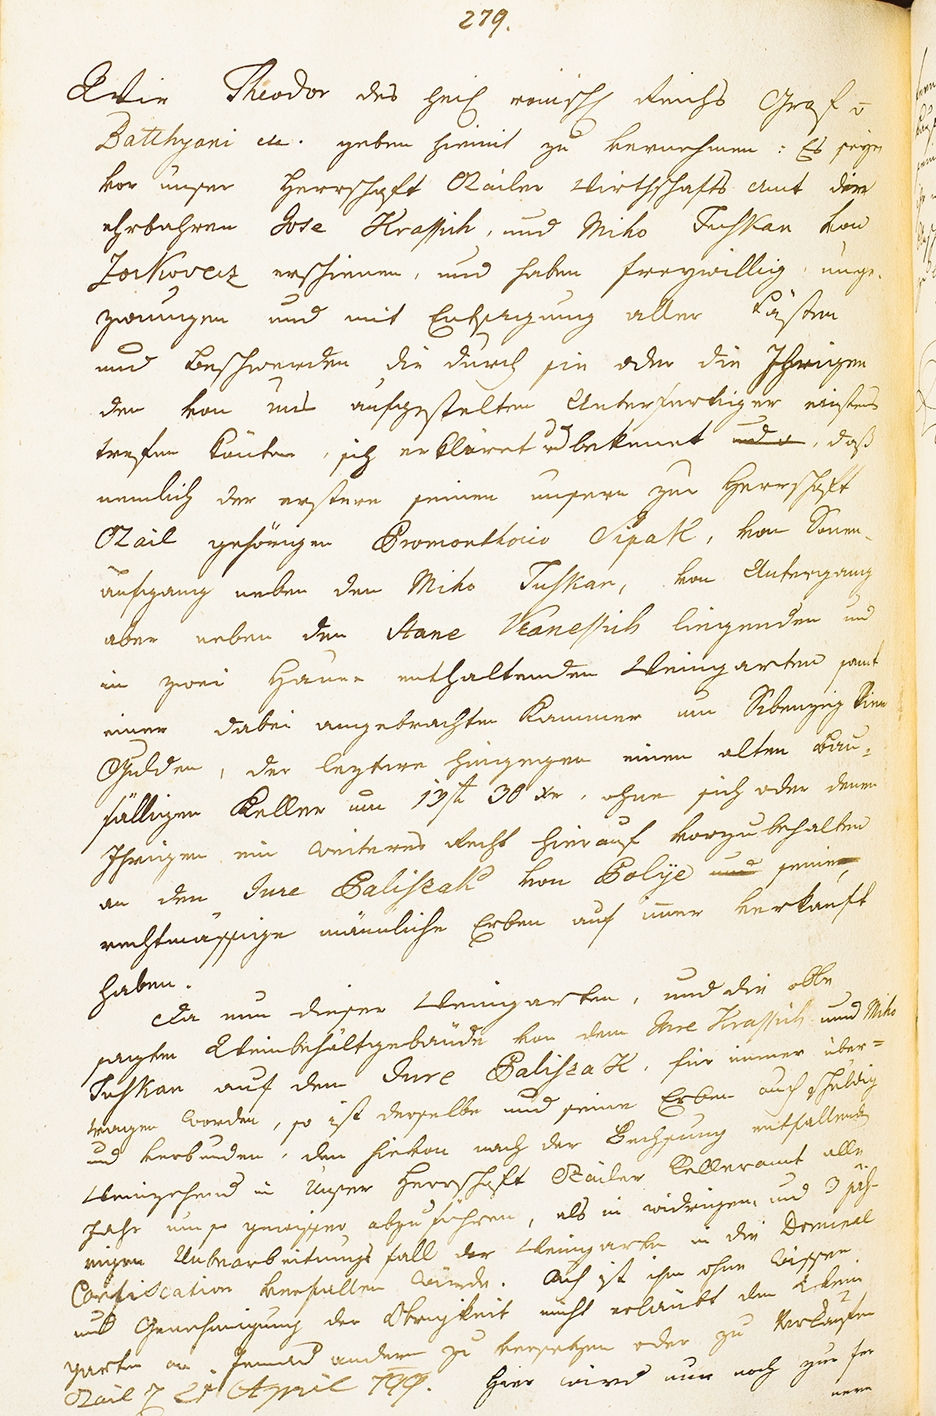 279.
Wir Theodor des heil römisch Reichs Graf v
Batthyani etc. geben hiemit zu vernehmen: Es seyen
vor unser Herrschaft Ozailer Wirthschafts Amt die
ehrbahren Jose Krassich, und Miho Tuskan von
Zorkovecz erschienen, und haben freywillig, unge-
zwungen und mit Entsagung aller Lästen
und Beschwerden die durch sie oder die Ihrigen
den von uns aufgestelten Unterfertiger einstens
trefen könten, sich erkläret und bekennet und, daß
nemlich der erstere seinen unsern zur Herrschaft
Ozail gehörigen Promonthorio Sipak, von Sonen-
aufgang neben den Miho Tuskan, von Untergang
aber neben den Stane Vranessich liegenden und
in zwei Hauer enthaltenden Weingarten samt
einer dabei angebrachten Kammer um Sibenzig
Gulden, der leztere hingegen einen alten bau-
fälligen Keller um 13 fl 30 xr, ohne sich oder denen
Ihrigen ein weiteres Recht hierauf vorzubehalten
an den Jure Paliszak von Polije und seine
rechtmässige männliche Erben auf immer verkauft
haben.
Da nun dieser Weingarten, und die obbe
sagten Weinbehältgebäude von dem Jure Krassich und Miho
Tuskan auf den Jure Paliszak, für immer über-
tragen worden, so ist derselbe und seine Erben auch schuldig
und verbunden, den hievon nach der Bechsung entfallenden
Weinzehend in Unser Herrschaft Ozailer Kelleramt alle
Jahr um so gewisser abzuführen, als in widrigen, und 3 jäh-
rigen Unbearbeitungs fall der Weingarten in die Dominal
Confiscation verfallen würde. Auch ist ihm ohne Wissen
und Genehmigung der Obrigkeit nicht erlaubt den Wein
garten an Jemand andern zu versetzen oder zu Verkaufen
Ozail 21 April 799. Hier wird nun noch zur fer
nern